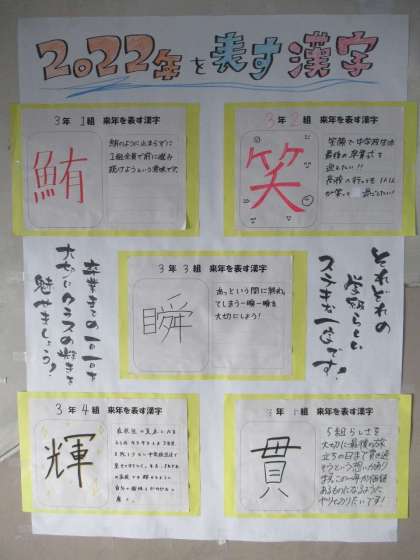 2022年を表す漢字
3年 1組 来年を表す漢字
鮪
鮪のように止まらずに
1組全員で前に進み
続けようという意味です。
3年 2組 来年を表す漢字
笑
笑顔で中学校生活
最後の卒業式を
迎えたい!!
高校に行っても1人1人
が笑って過ごしたい!
3年 3組 来年を表す漢字
瞬
あっという間に終わっ
てしまう一瞬一瞬を
大切にしよう!
それぞれの
学級らしい
ステキな一文字です!
卒業までの一日一日を
大切にクラスの輝きを
魅せましょう!
3年 4組 来年を表す漢字
輝
3年 組 来年を表す漢字
貫
5組らしさを
大切に最後の旅
立ちの日まで貫き通
そうという想いがあり
ます。この一年が価値
あるものになるように
やりきりたいです!